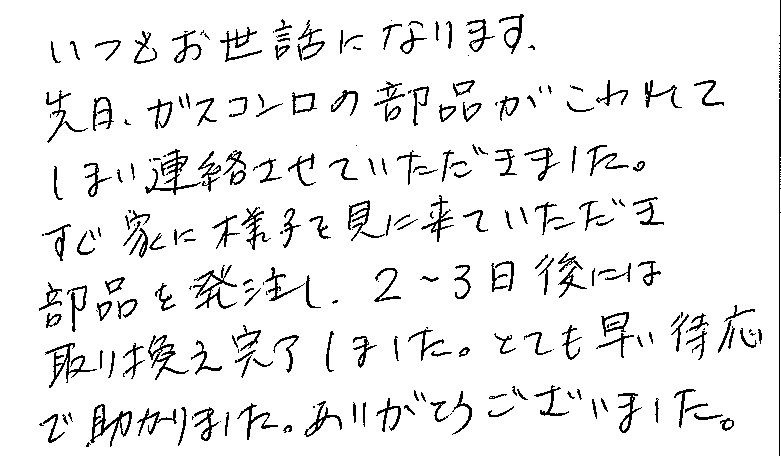 いつもお世話になります、
先日、ガスコンロの部品がこわれて
しまい連絡させていただきました。
すぐ家に様子を見に来ていただき
部品を発注し、2~3日後には
取り換え完了しました。とても早い待応
で助かりました。ありがとうございました。